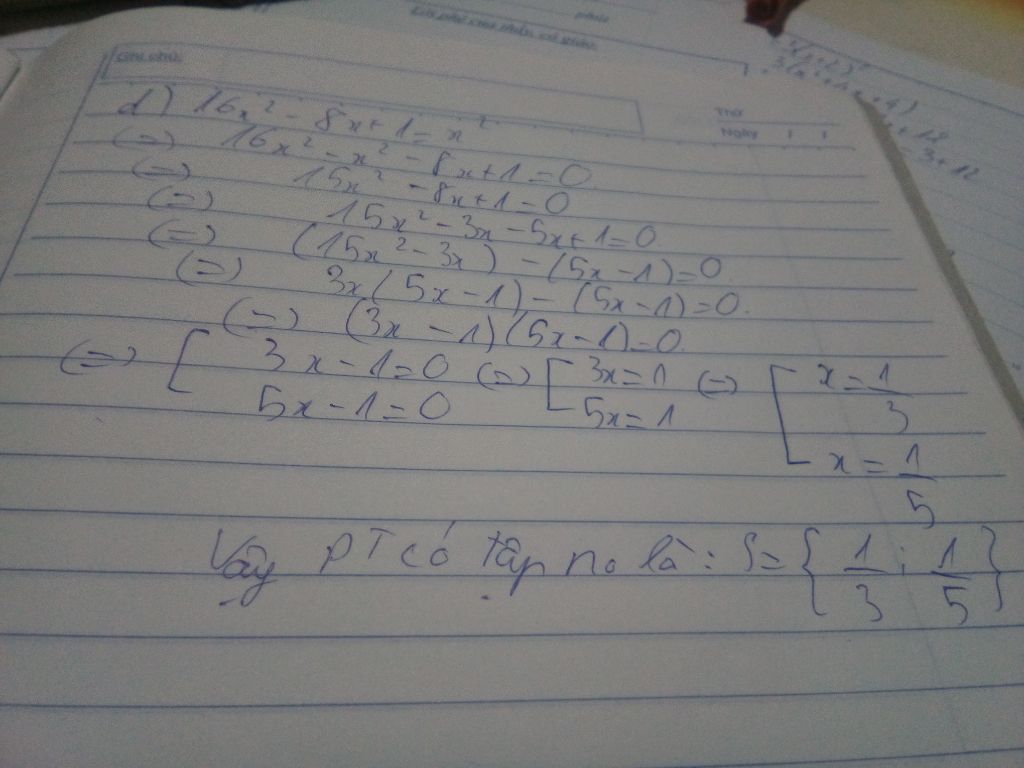 Lời phê của thầy, cô giáo:
Ghi chú:
Thứ
Ngày
d) 16x² - 8x + 1 = x²
(=) 16x² - x² - 8x + 1 = 0
(=) 15x² - 8x + 1 = 0
(=) 15x² - 3x - 5x + 1 = 0
(=) (15x² - 3x) - (5x - 1) = 0
(=) 3x(5x - 1) - (5x - 1) = 0.
(=) (3x - 1)(5x - 1) = 0.
(=) [ 3x - 1 = 0 (=) [ 3x = 1 (=) [ x = 1/3
5x - 1 = 0 5x = 1 x = 1/5
Vậy PT có tập no là: S = { 1/3 ; 1/5 }